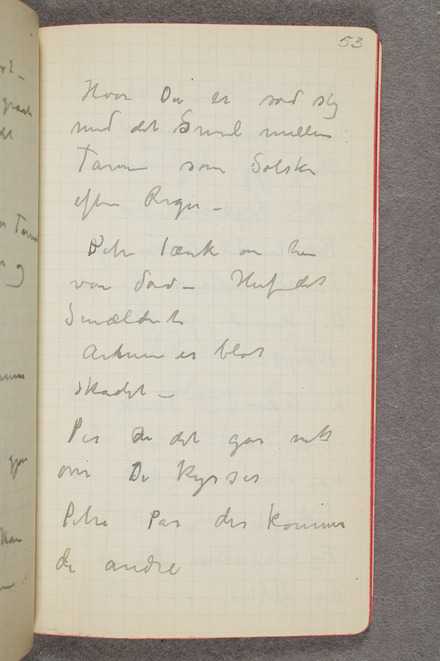 53
Hvor Du er sød sig
med det Smil mellem
Tarene som Solskin
efter Regn –
Petra tænk om hun
var død – Huf det
Smældet
Armen er blot
skadet –
Pas det gør
om Du kysses
Petra Pas der kommer
de andre